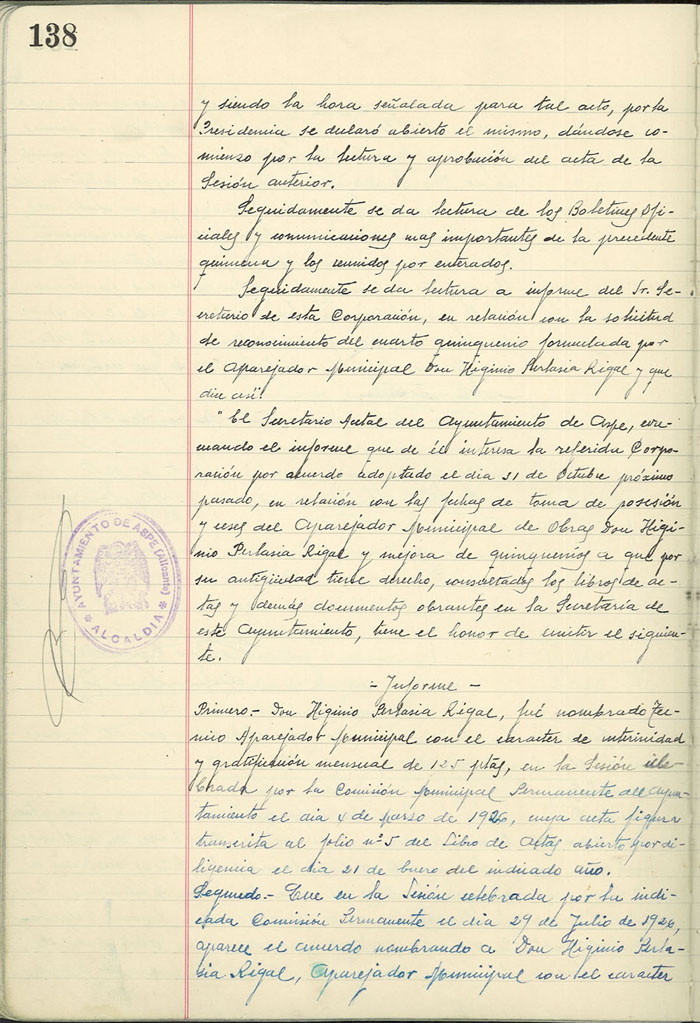 138
y siendo la hora señalada para tal acto, por la
Presidencia se declaró abierto el mismo, dándose co-
mienzo por la lectura y aprobación del acta de la
Sesión anterior.
Seguidamente se da lectura de los Boletines Ofi-
ciales y comunicaciones mas importantes de la precedente
quincena y los reunidos por enterados.
Seguidamente se da lectura a informe del Sr. Se-
cretario de esta Corporación, en relación con la solicitud
de reconocimiento del cuarto quinquenio formulada por
el Aparejador Municipal Don Higinio Pertasia Rigal y que
dice así:
"El Secretario Actal del Ayuntamiento de Aspe, evac-
uando el informe que de él interesa la referida Corpo-
ración por acuerdo adoptado el dia 31 de Octubre próximo
pasado, en relación con las fechas de toma de posesión
y ceses del Aparejador Municipal de Obras Don Higi-
nio Pertasia Rigal y mejora de quinquenios a que por
su antigüedad tiene derecho, consultados los libros de ac-
tas y demás documentos obrantes en la Secretaría de
este Ayuntamiento, tiene el honor de emitir el siguien-
te.
AYUNTAMIENTO DE ASPE (Alicante)
ALCALDIA
- Informe -
Primero.- Don Higinio Pertasia Rigal, fué nombrado Téc-
nico Aparejador Municipal con el caracter de interinidad
y gratificación mensual de 125 ptas, en la Sesión cele-
brada por la Comisión Municipal Permanente del Ayun-
tamiento el dia 4 de marzo de 1926, cuya acta figura
transcrita al folio nº 5 del Libro de Actas abierto por di-
ligencia el dia 21 de Enero del indicado año.
Segundo.- Que en la Sesión celebrada por la indi-
cada Comisión Permanente el dia 29 de Julio de 1926,
aparece el acuerdo nombrando a Don Higinio Perta-
sia Rigal, Aparejador Municipal con el caracter